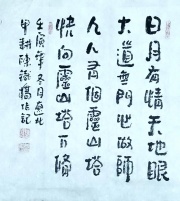 日月有情天地眼
大道無門做師
人人有個靈山塔
快向靈山塔下修
壬寅年冬月
耕陳記